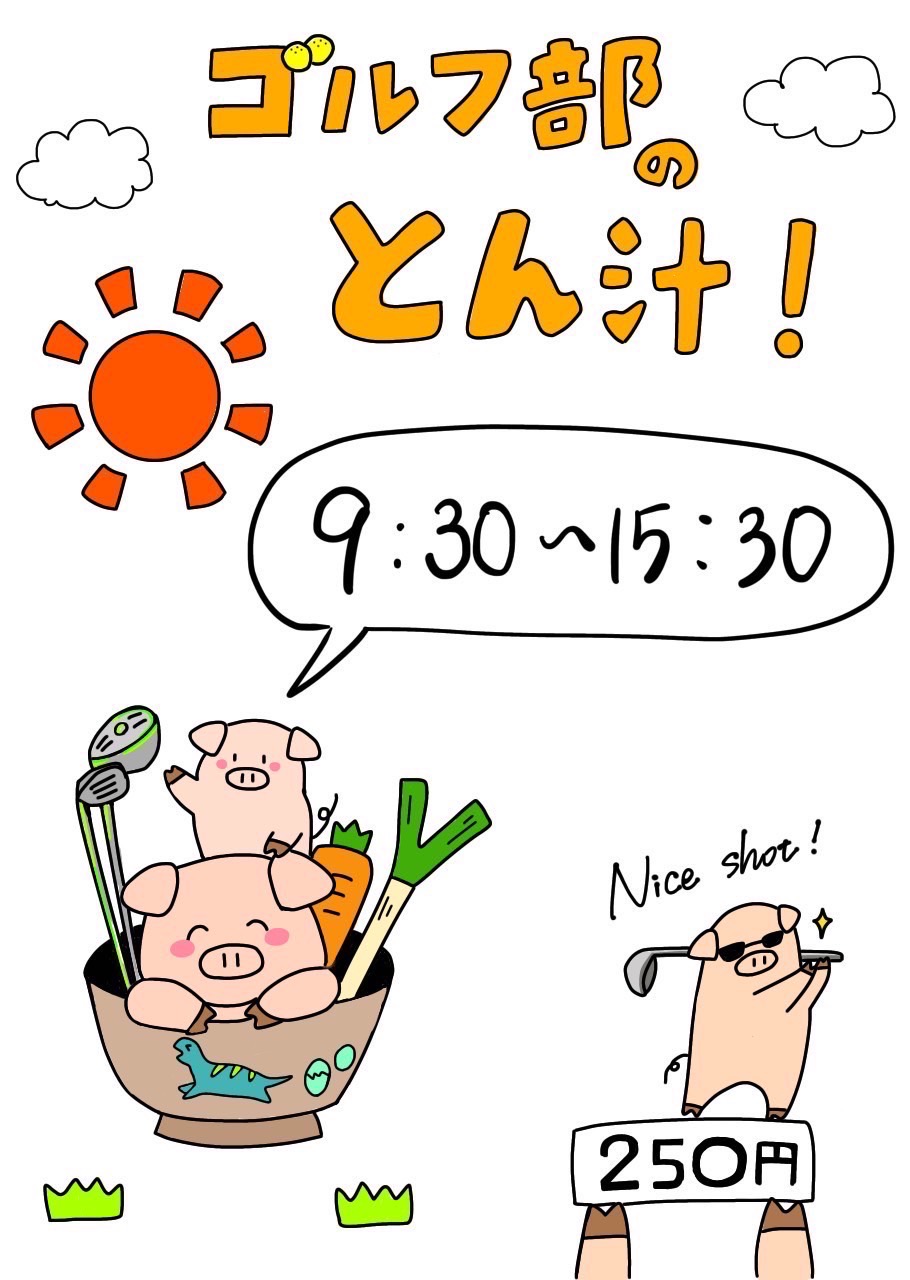 ゴルフ部の
とん汁！
9:30〜15:30
Nice shot!
250円